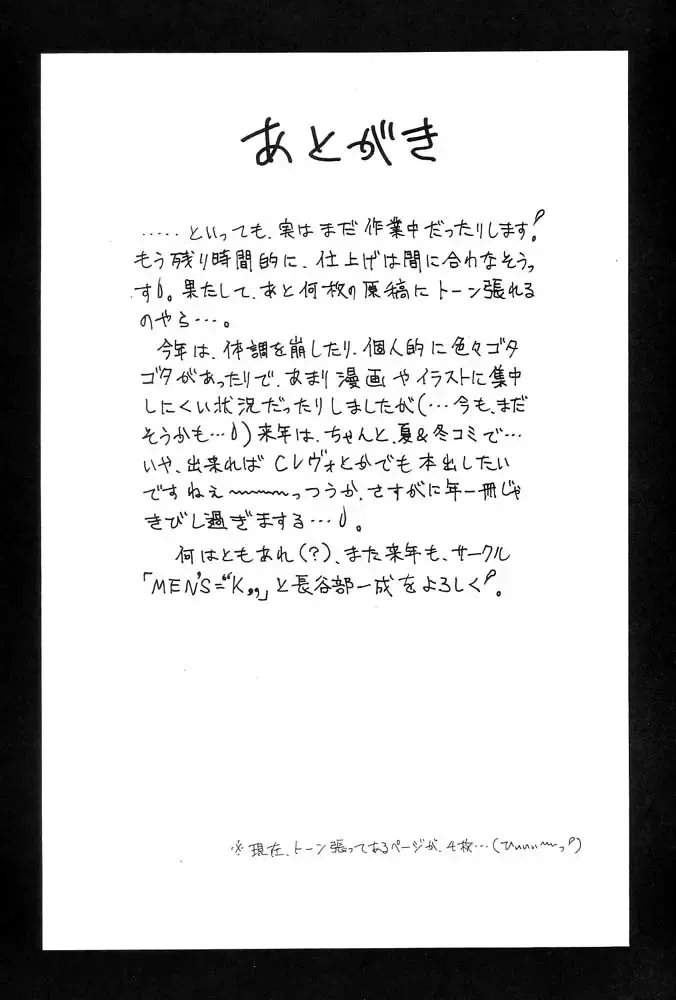 あとがき
・・・・・といっても、実はまだ作業中だったりします!
もう残り時間的に、仕上げは間に合わなそうっ
す。果たして、あと何枚の原稿にトーン張れる
のやら…。
今年は、体調を崩したり、個人的に色々ゴタ
ゴタがあったりで、あまり漫画やイラストに集中
しにくい状況だったりしましたが(…今も、まだ
そうかも…)来年は、ちゃんと、夏&冬コミで…
いや、出来ればCレヴォとかでも本出したい
ですねぇ〜〜〜っつうか、さすがに年一冊じゃ
きびし過ぎまする…。
何はともあれ(?)、また来年も、サークル
「MEN'S="K„」と長谷部一成をよろしく!。
※現在、トーン張ってあるページが、4枚…(ひいいい〜っ!)